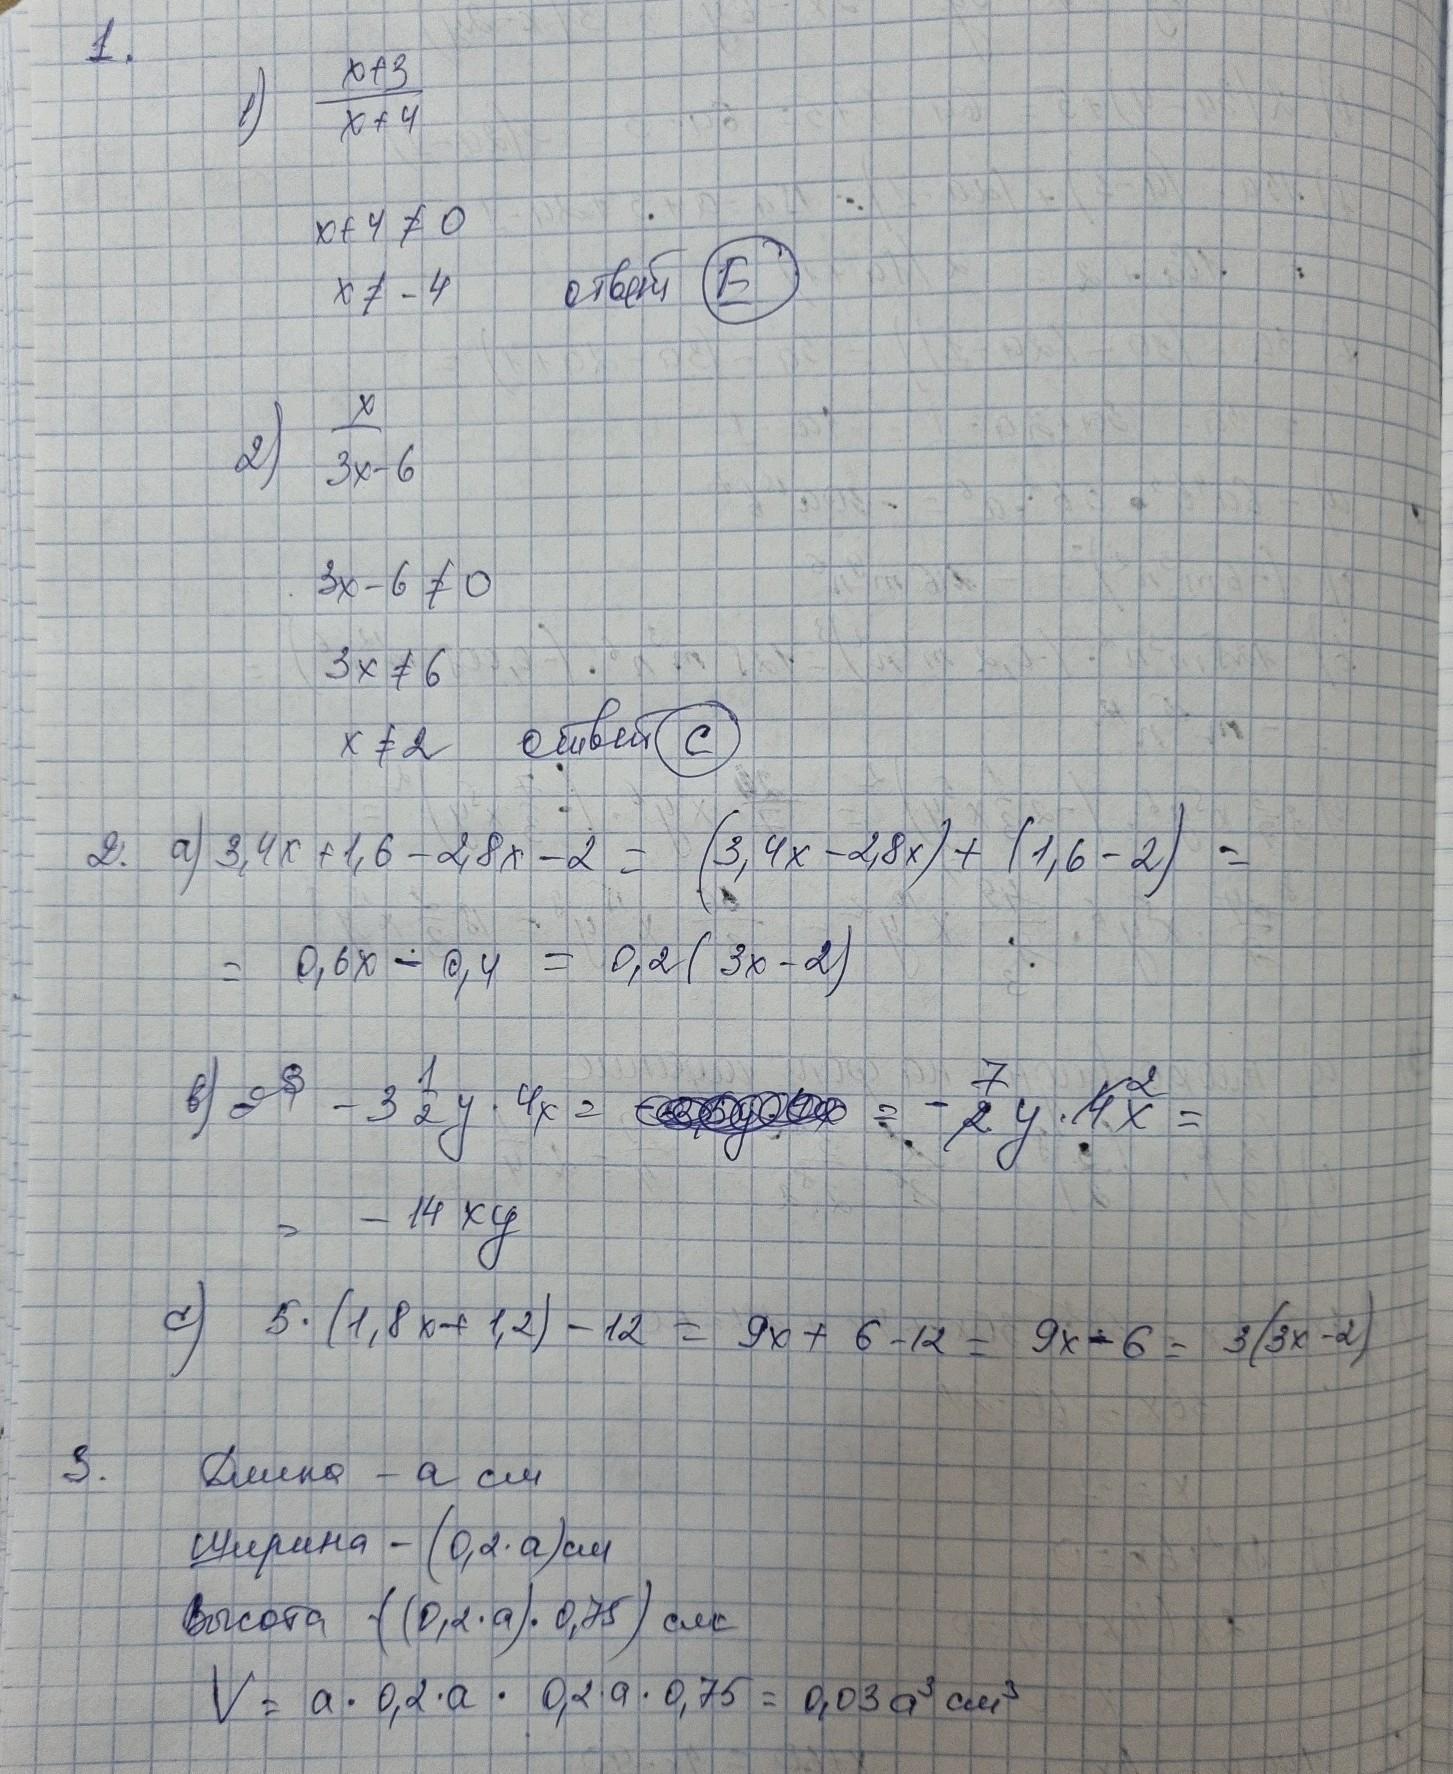 1.
1) x+3 / x+4
x+4 ≠ 0
x ≠ -4 ответ E
2) x / 3x-6
3x-6 ≠ 0
3x ≠ 6
x ≠ 2 ответ C
2. a) 3,4x+1,6-2,8x-2 = (3,4x-2,8x)+(1,6-2) =
= 0,6x - 0,4 = 0,2(3x-2)
в) - 3 1/2 y · 4x = = - 7/2 y · 4 2 x =
= - 14 xy
c) 5·(1,8x+1,2)-12 = 9x+6-12 = 9x-6 = 3(3x-2)
3. Длина - a см
Ширина - (0,2·a)см
Высота - ((0,2·a)·0,75) см
V = a · 0,2·a · 0,2·a·0,75 = 0,03a³ см³